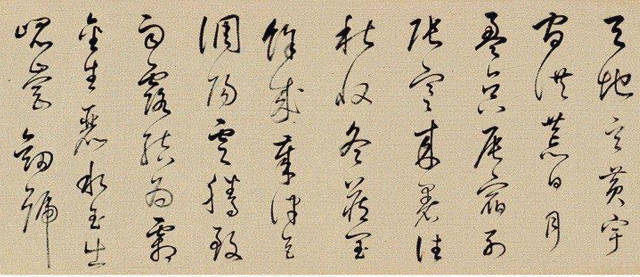 天地玄黃宇
宙洪荒日月
盈昃辰宿列
張寒來暑往
秋收冬藏閏
餘成歲律呂
調陽雲騰致
雨露結為霜
金生麗水玉出
崐崗劍號